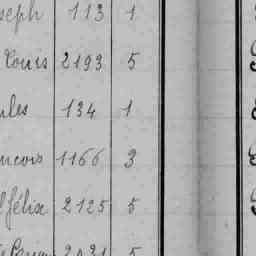 seph 113 1
Louis 2193 5
ules 134 1
ncois 1166 3
félix 2125 5
2031 5